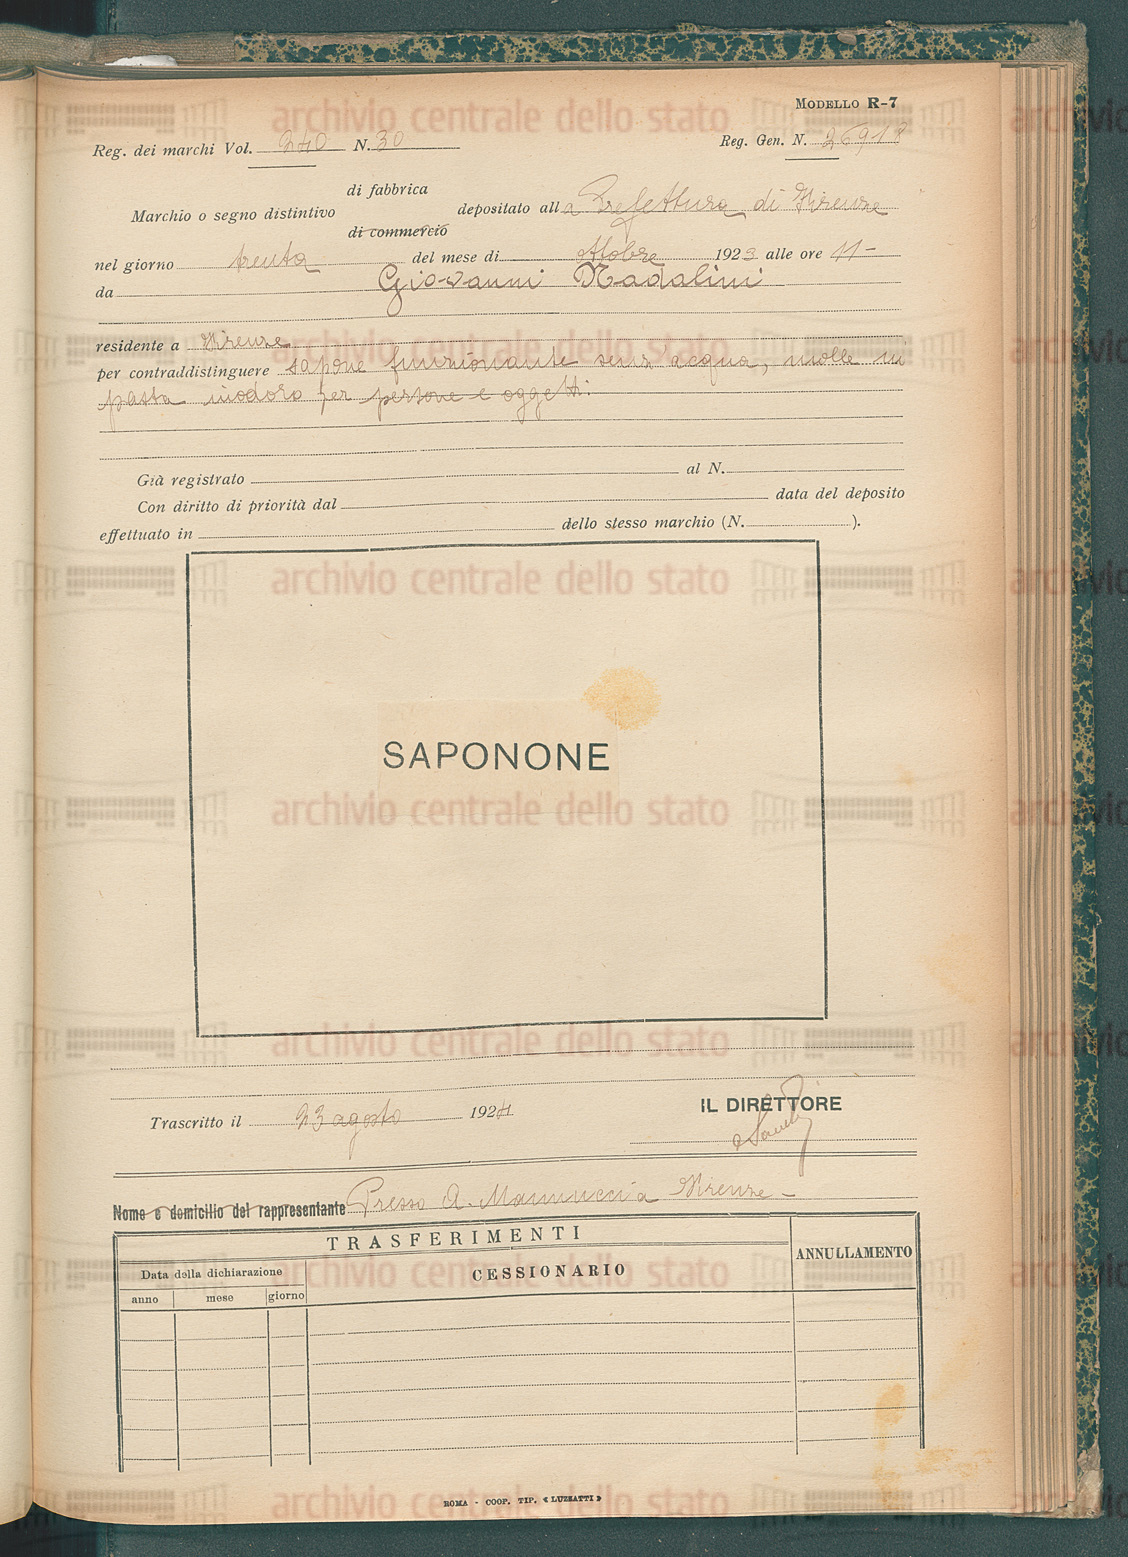 MODELLO R-7
Reg. dei marchi Vol. 240 N. 30 Reg. Gen. N. 26918
di fabbrica
Marchio o segno distintivo depositato alla Prefettura di Firenze
di commercio
nel giorno trenta del mese di ottobre 1923 alle ore 11-
da Giovanni Nadalini
residente a Firenze
per contraddistinguere sapone funzionante senz acqua, molle in
pasta inodoro per persone e oggetti.
Già registrato al N.
Con diritto di priorità dal data del deposito
effettuato in dello stesso marchio (N. ).
archivio centrale dello stato
SAPONONE
Trascritto il 23 agosto 1924
IL DIRETTORE
Nome e domicilio del rappresentante Presso A. Mannucci a Firenze -
TRASFERIMENTI
ANNULLAMENTO
Data della dichiarazione
CESSIONARIO
anno mese giorno
ROMA - COOP. TIP. « LUZZATTI »